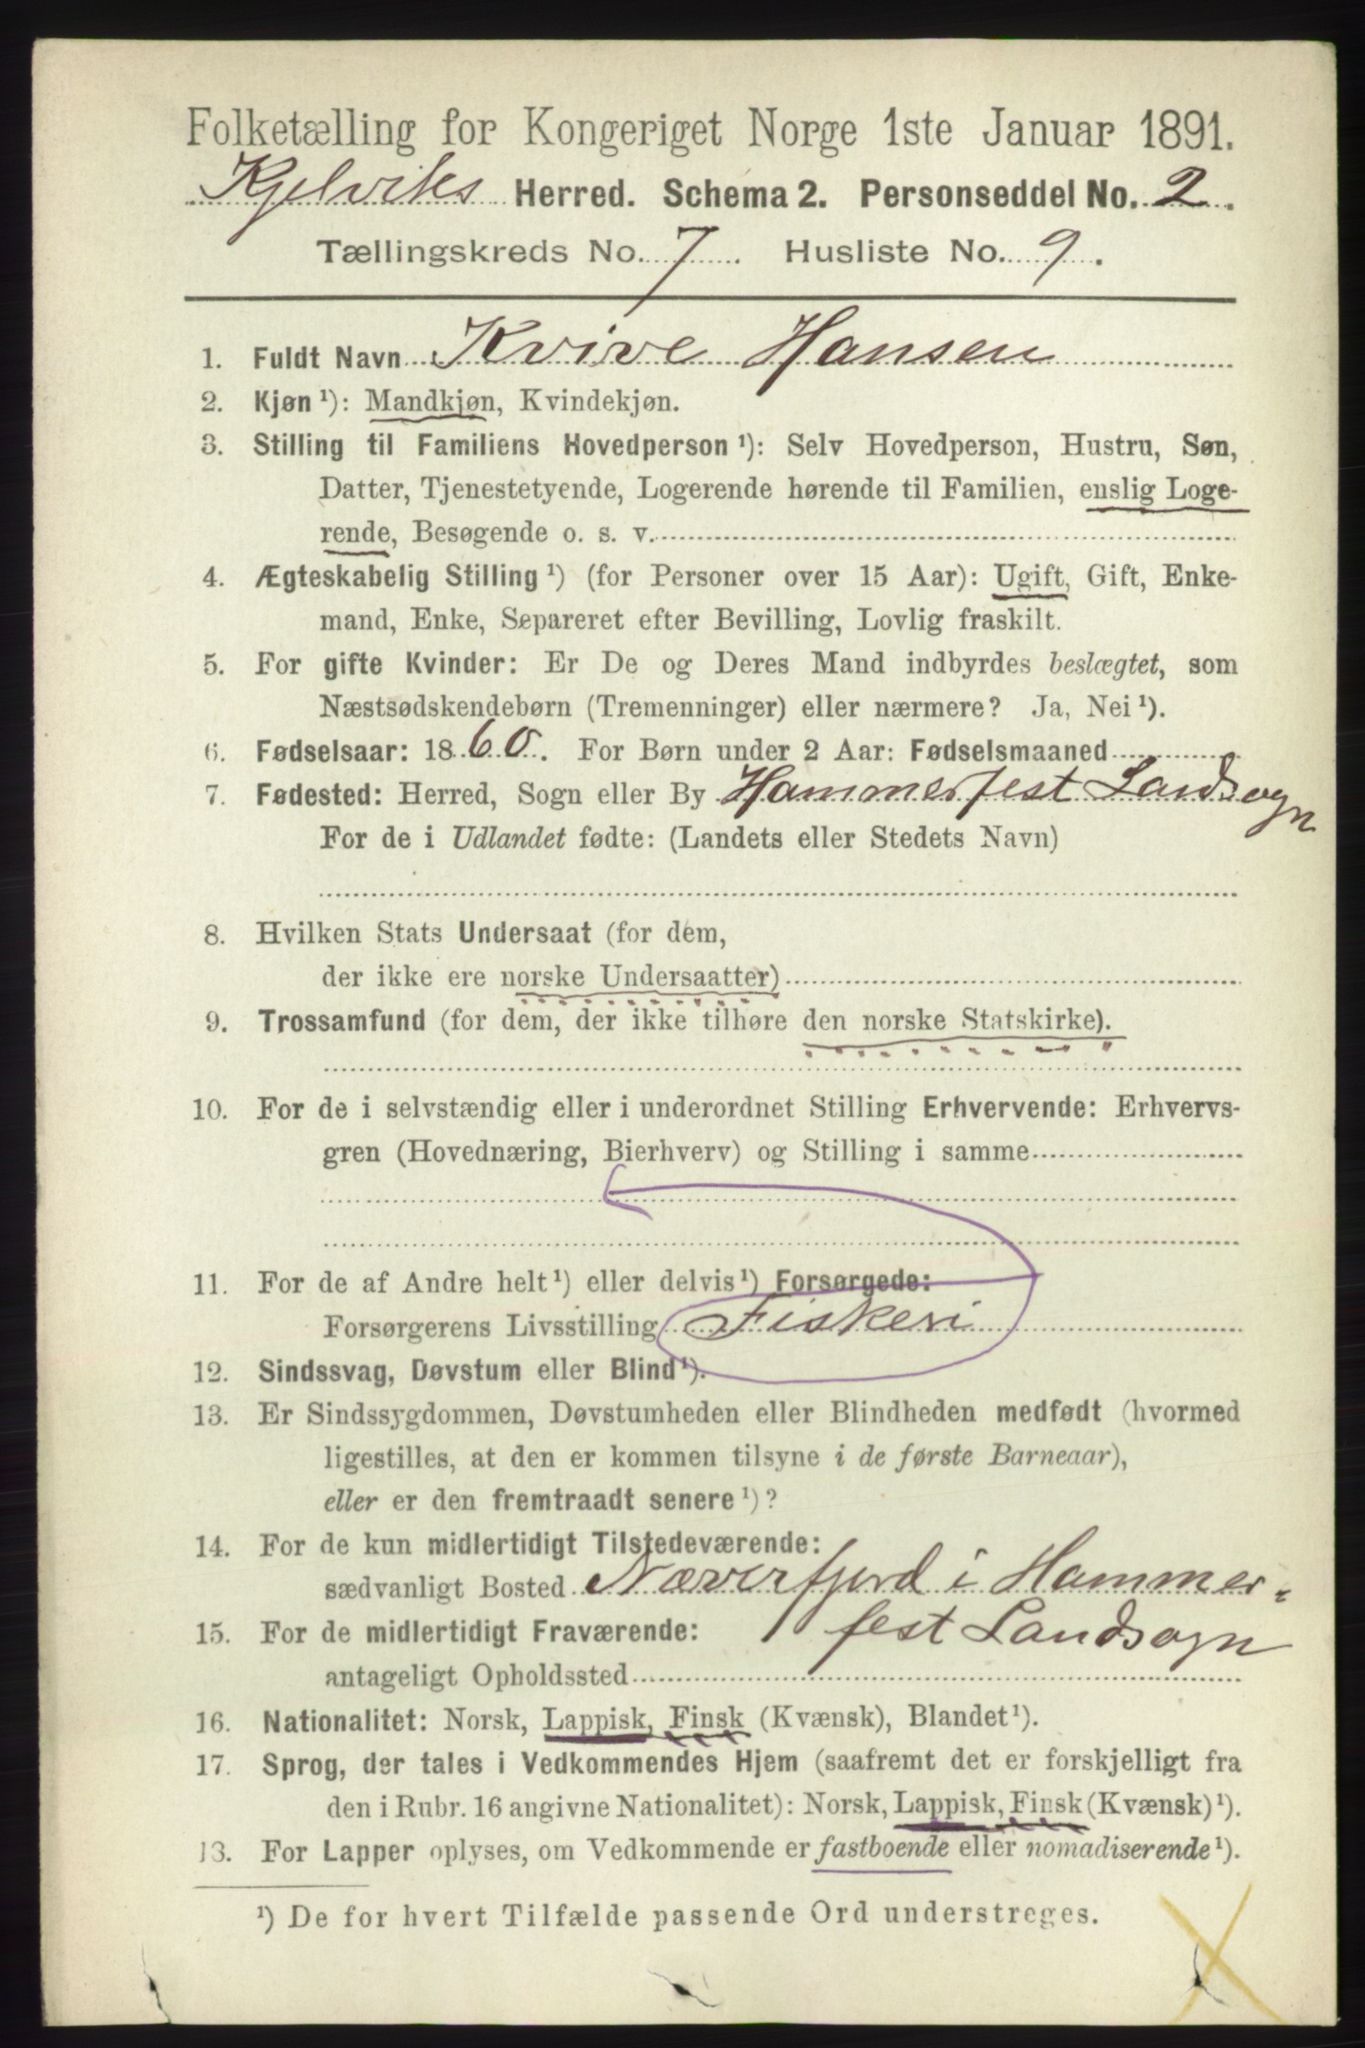 Folketælling for Kongeriget Norge 1ste Januar 1891.
Kjelviks Herred. Schema 2. Personseddel No. 2.
Tællingskreds No. 7. Husliste No. 9.
1. Fuldt Navn Kvive Hansen
2. Kjøn ¹): Mandkjøn, Kvindekjøn.
3. Stilling til Familiens Hovedperson ¹): Selv Hovedperson, Hustru, Søn,
Datter, Tjenestetyende, Logerende hørende til Familien, enslig Loge-
rende, Besøgende o. s. v.
4. Ægteskabelig Stilling ¹) (for Personer over 15 Aar): Ugift, Gift, Enke-
mand, Enke, Separeret efter Bevilling, Lovlig fraskilt.
5. For gifte Kvinder: Er De og Deres Mand indbyrdes beslægtet, som
Næstsødskendebørn (Tremenninger) eller nærmere? Ja, Nei ¹).
6. Fødselsaar: 1860. For Børn under 2 Aar: Fødselsmaaned
7. Fødested: Herred, Sogn eller By Hammerfest Landsogn
For de i Udlandet fødte: (Landets eller Stedets Navn)
8. Hvilken Stats Undersaat (for dem,
der ikke ere norske Undersaatter)
9. Trossamfund (for dem, der ikke tilhøre den norske Statskirke).
10. For de i selvstændig eller i underordnet Stilling Erhvervende: Erhvervs-
gren (Hovednæring, Bierhverv) og Stilling i samme
11. For de af Andre helt ¹) eller delvis ¹) Forsørgede:
Forsørgerens Livsstilling Fiskeri
12. Sindssvag, Døvstum eller Blind ¹).
13. Er Sindssygdommen, Døvstumheden eller Blindheden medfødt (hvormed
ligestilles, at den er kommen tilsyne i de første Barneaar),
eller er den fremtraadt senere ¹)?
14. For de kun midlertidigt Tilstedeværende:
sædvanligt Bosted Næverfjord i Hammer-
15. For de midlertidigt Fraværende: fest Landsogn
antageligt Opholdssted
16. Nationalitet: Norsk, Lappisk, Finsk (Kvænsk), Blandet ¹).
17. Sprog, der tales i Vedkommendes Hjem (saafremt det er forskjelligt fra
den i Rubr. 16 angivne Nationalitet): Norsk, Lappisk, Finsk (Kvænsk) ¹).
13. For Lapper oplyses, om Vedkommende er fastboende eller nomadiserende ¹).
¹) De for hvert Tilfælde passende Ord understreges.